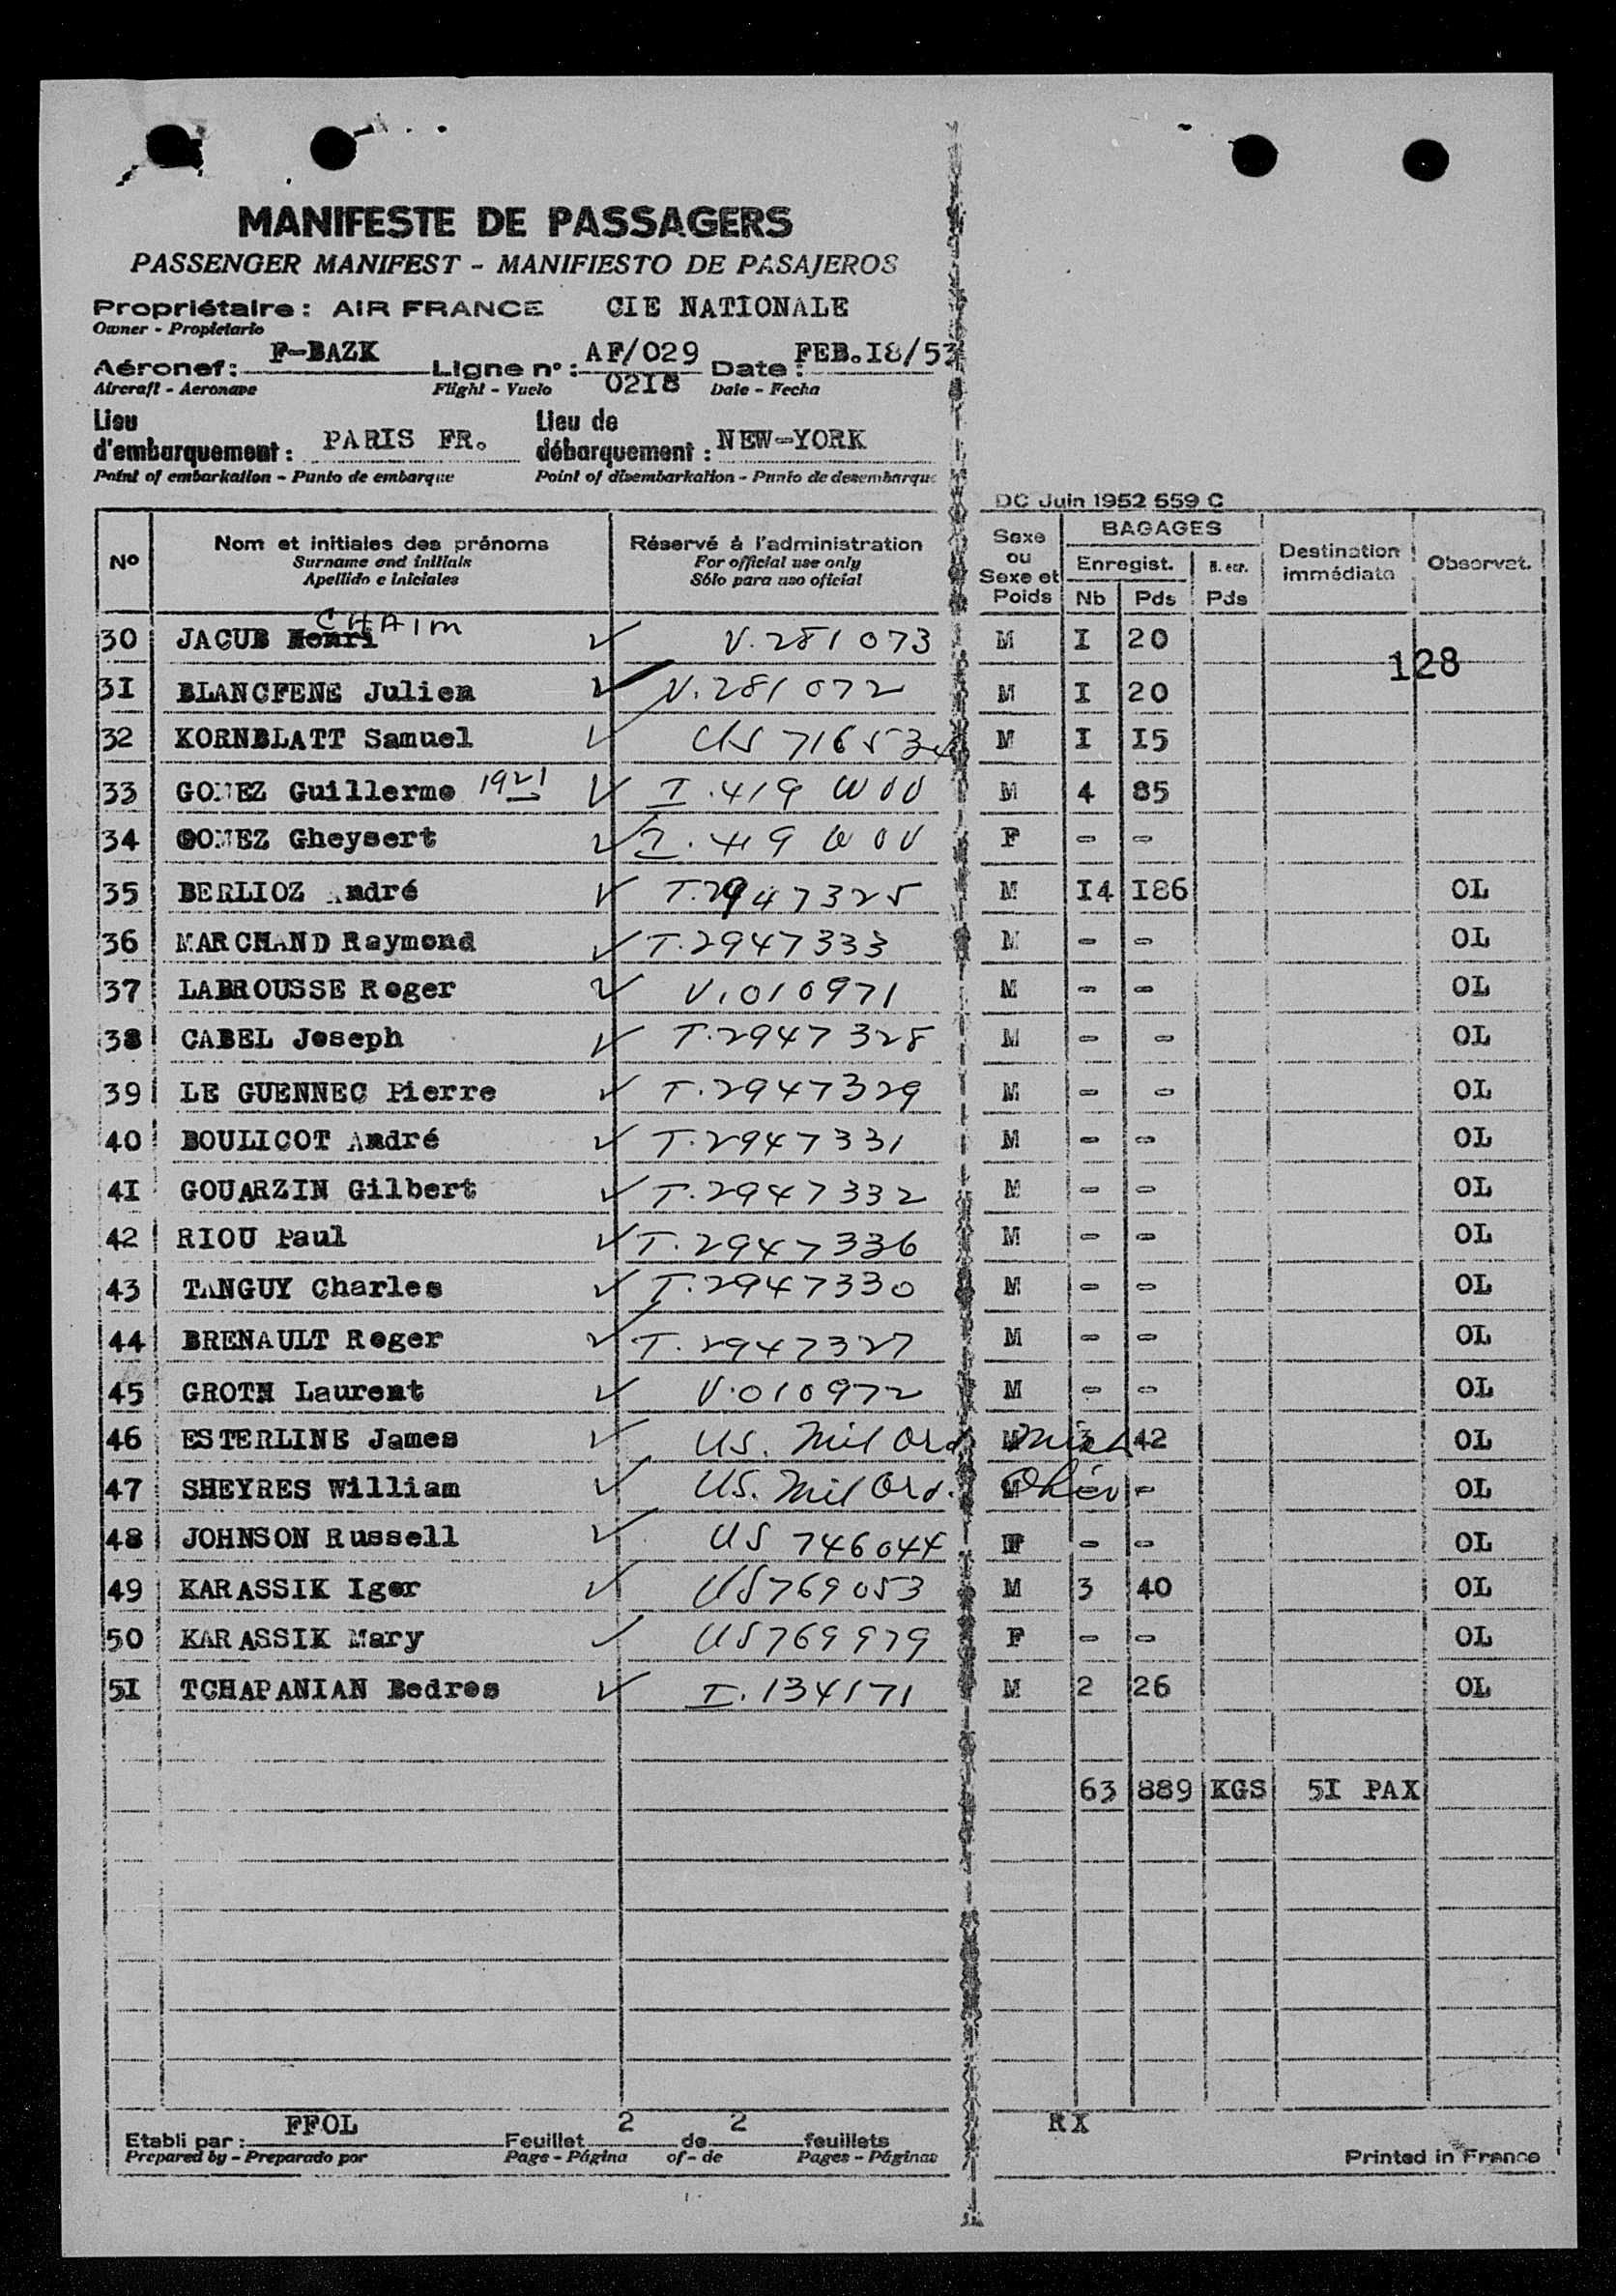 MANIFESTE DE PASSAGERS
PASSENGER MANIFEST - MANIFIESTO DE PASAJEROS
Propriétaire : AIR FRANCE CIE NATIONALE
Owner - Propietario
Aéronef : F-BAZK Ligne n° : AF/029 Date : FEB.I8/53
Aircraft - Aeronave Flight - Vuelo 02I8 Date - Fecha
Lieu d'embarquement : PARIS FR. Lieu de débarquement : NEW-YORK
Point of embarkation - Punto de embarque Point of disembarkation - Punto de desembarque
DC Juin 1952 559 C
Nº Nom et initiales des prénoms Réservé à l'administration Sexe ou Sexe et Poids BAGAGES Destination immédiate Observat.
Surname and initials For official use only Enregist. N. enr.
Apellido e iniciales Sólo para uso oficial Nb Pds Pds
CHAIM
30 JACUB Henri V. 281 073 M I 20
128
3I BLANCFENE Julien V. 281 072 M I 20
32 KORNBLATT Samuel US 71653 M I I5
33 GOMEZ Guillermo 1921 I. 419 W00 M 4 85
34 GOMEZ Gheysert I. 419 W00 F - -
35 BERLIOZ André T. 2947325 M I4 I86 OL
36 MARCHAND Raymond T. 2947333 M - - OL
37 LABROUSSE Roger V. 010971 M - - OL
38 CABEL Joseph T. 2947328 M - - OL
39 LE GUENNEC Pierre T. 2947329 M - - OL
40 BOULICOT André T. 2947331 M - - OL
4I GOUARZIN Gilbert T. 2947332 M - - OL
42 RIOU Paul T. 2947336 M - - OL
43 TANGUY Charles T. 2947330 M - - OL
44 BRENAULT Roger T. 2947327 M - - OL
45 GROTH Laurent V. 010972 M - - OL
46 ESTERLINE James US. Mil Ord. Mich M 3 42 OL
47 SHEYRES William US. Mil Ord. Ohio M - - OL
48 JOHNSON Russell US 746044 - - OL
49 KARASSIK Igor US 769053 M 3 40 OL
50 KARASSIK Mary US 769979 F - - OL
5I TCHAPANIAN Bedros I. 134171 M 2 26 OL
63 889 KGS 5I PAX
Etabli par : FFOL Feuillet 2 de 2 feuillets RX
Prepared by - Preparado por Page - Página of - de Pages - Páginas Printed in France